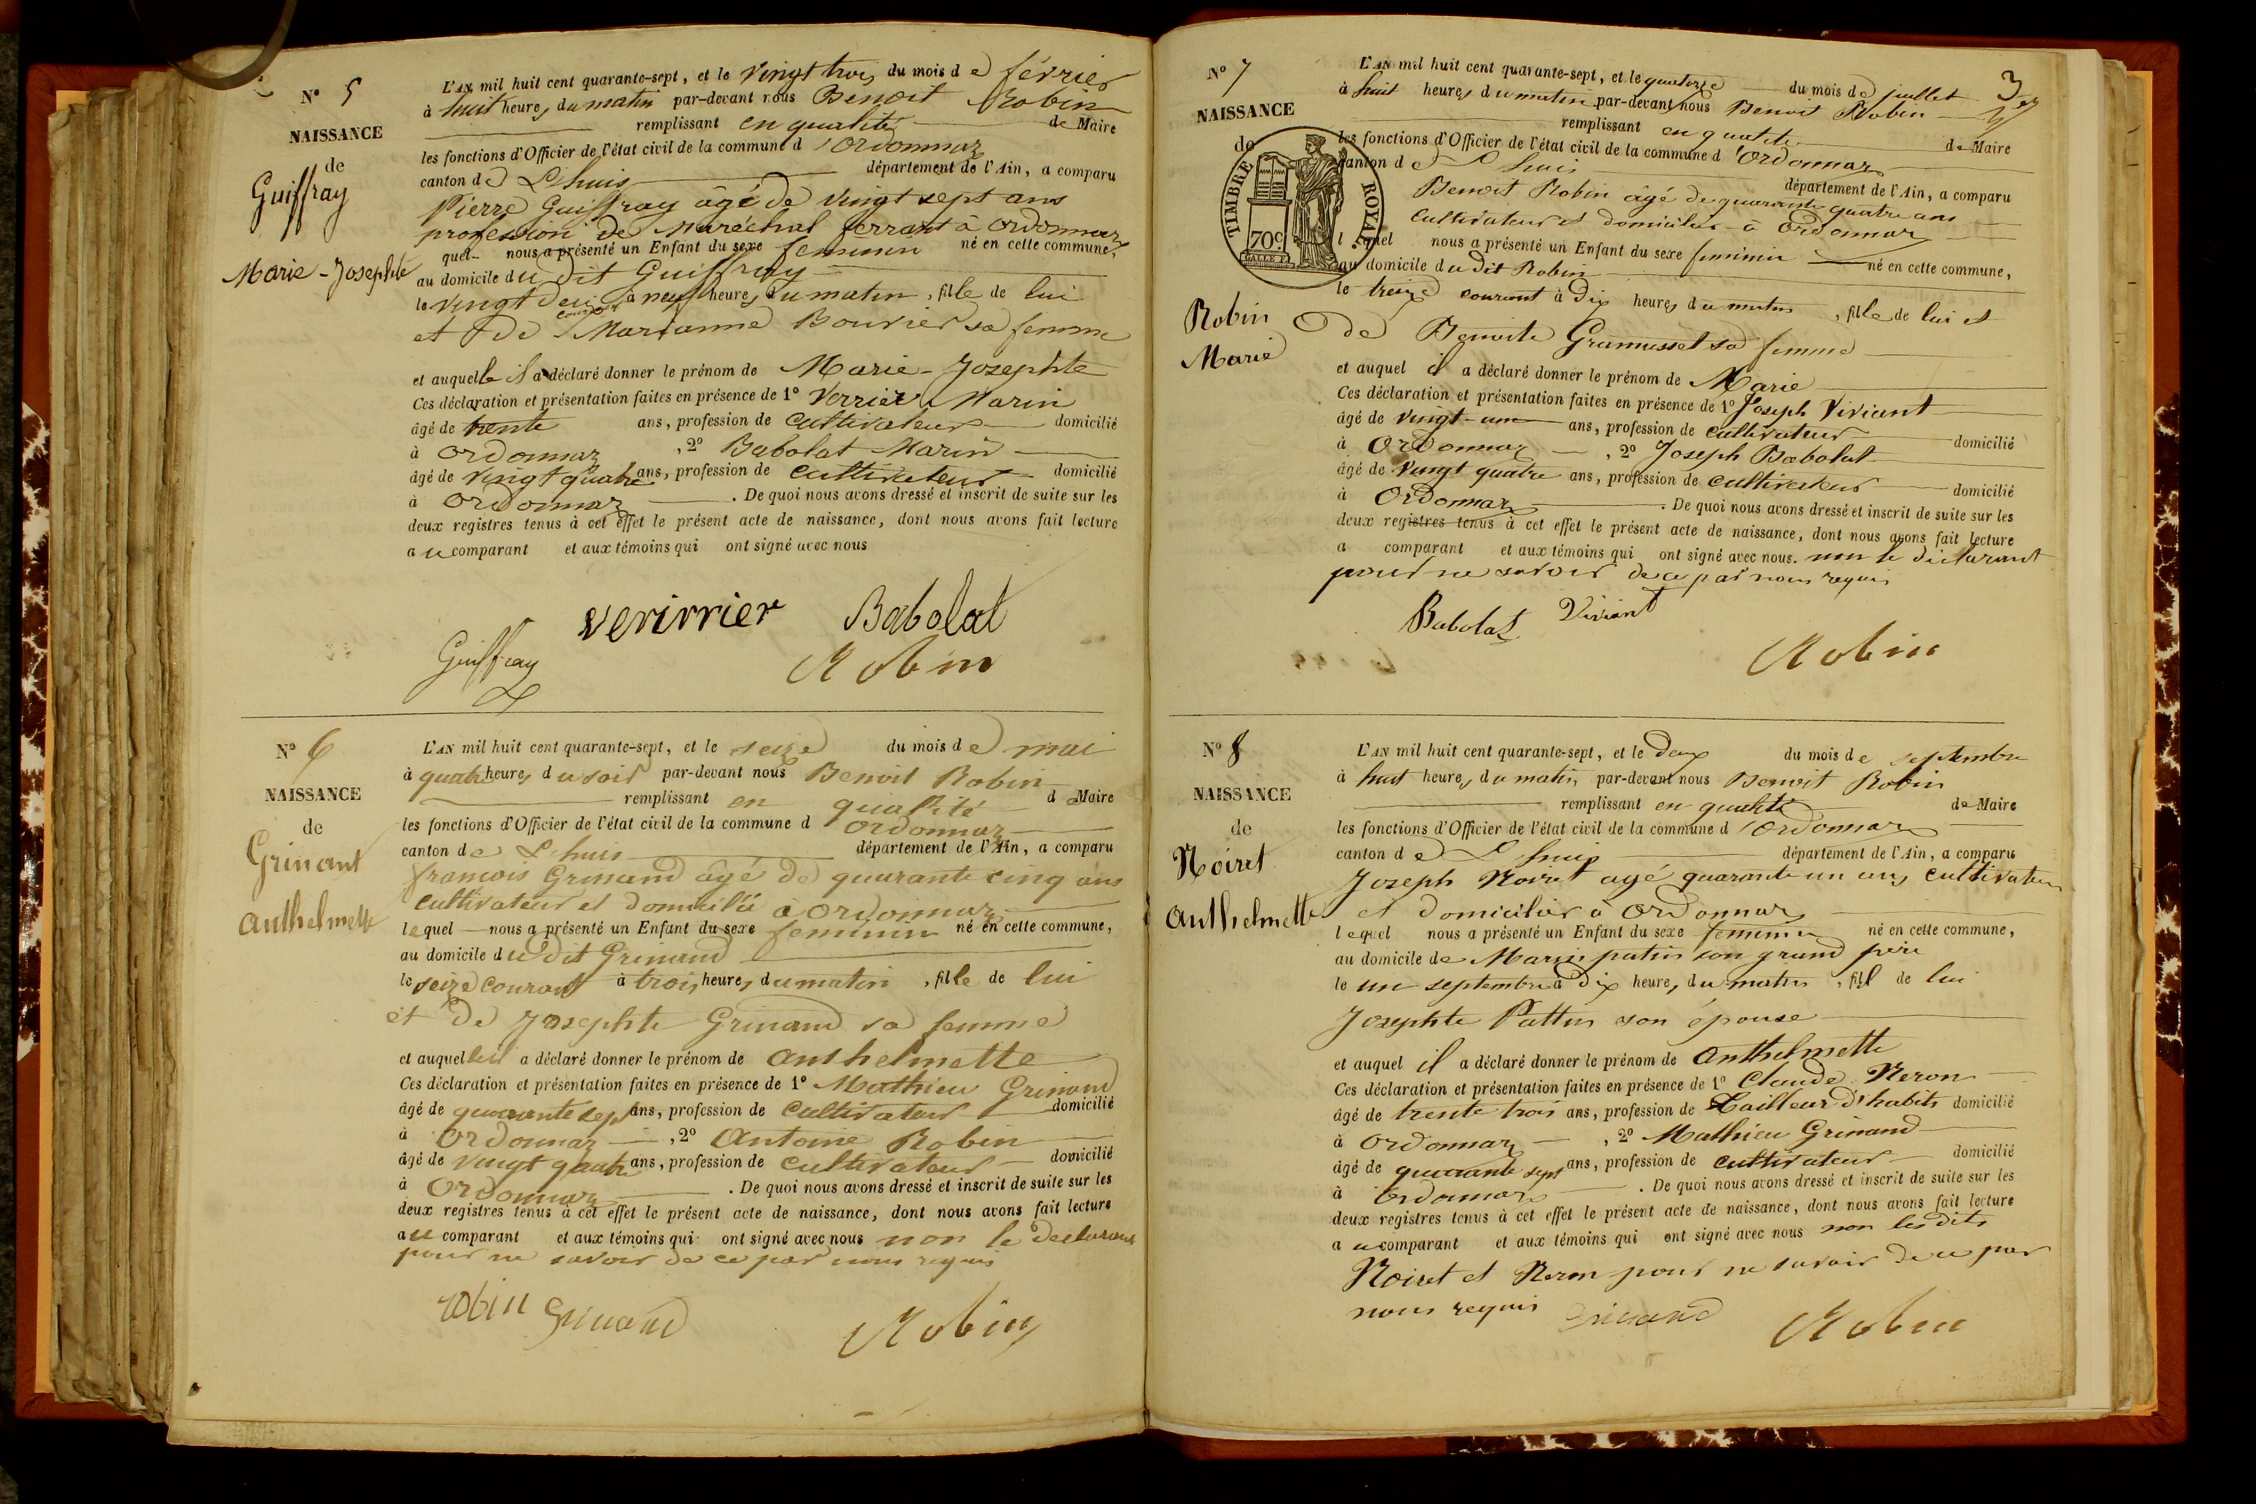 N° 5
NAISSANCE
de
Guiffray
Marie-Josephte
L'AN mil huit cent quarante-sept, et le vingt trois du mois de février
à huit heures du matin par-devant nous Benoit Robin
remplissant en qualité de Maire
les fonctions d'Officier de l'état civil de la commune d'Ordonnaz
canton de Lhuis département de l'Ain, a comparu
Pierre Guiffray âgé de vingt sept ans
profession de Maréchal ferrant à ordonnaz
quel nous a présenté un Enfant du sexe feminin né en cette commune,
au domicile du dit Guiffray
le vingt deux courant à neuf heures du matin, fille de lui
et de Marianne Bouvier sa femme
et auquelle il a déclaré donner le prénom de Marie-Josephte
Ces déclaration et présentation faites en présence de 1° Verrier Marin
âgé de trente ans, profession de cultivateur domicilié
à ordonnaz, 2° Babolat Marin
âgé de vingt quatre ans, profession de cultivateur domicilié
à ordonnaz. De quoi nous avons dressé et inscrit de suite sur les
deux registres tenus à cet effet le présent acte de naissance, dont nous avons fait lecture
au comparant et aux témoins qui ont signé avec nous
verirrier Babolat
Guiffray Robin
N° 6
NAISSANCE
de
Grinant
anthelmette
L'AN mil huit cent quarante-sept, et le seize du mois de mai
à quatre heures du soir par-devant nous Benoit Robin
remplissant en qualité de Maire
les fonctions d'Officier de l'état civil de la commune d ordonnaz
canton de Lhuis département de l'Ain, a comparu
francois Grinand âgé de quarante cinq ans
cultivateur et domicilié à ordonnaz
lequel nous a présenté un Enfant du sexe feminin né en cette commune,
au domicile du dit Grinand
le seize courant à trois heures du matin, fille de lui
et de Josephte Grinand sa femme
et auquelle il a déclaré donner le prénom de anthelmette
Ces déclaration et présentation faites en présence de 1° Mathieu Grinand
âgé de quarante sept ans, profession de cultivateur domicilié
à Ordonnaz, 2° Antoine Robin
âgé de vingt quatre ans, profession de cultivateur domicilié
à Ordonnaz. De quoi nous avons dressé et inscrit de suite sur les
deux registres tenus à cet effet le présent acte de naissance, dont nous avons fait lecture
au comparant et aux témoins qui ont signé avec nous non le declarant
pour ne savoir de ce par nous requis
robin Grinand Robin
N° 7
NAISSANCE
de
TIMBRE ROYAL
70c
Robin
Marie
3
L'AN mil huit cent quarante-sept, et le quatorze du mois de juillet
à huit heures du matin par-devant nous Benoit Robin
remplissant en qualité de Maire
les fonctions d'Officier de l'état civil de la commune d'Ordonnaz
canton de Lhuis
département de l'Ain, a comparu
Benoit Robin âgé de quarante quatre ans
cultivateur et domicilié à Ordonnaz
lequel nous a présenté un Enfant du sexe feminin né en cette commune,
au domicile du dit Robin
le treize courant à dix heures du matin, fille de lui et
de Benoite Gramusset sa femme
et auquel il a déclaré donner le prénom de Marie
Ces déclaration et présentation faites en présence de 1° Joseph Viviant
âgé de vingt-un ans, profession de cultivateur domicilié
à Ordonnaz, 2° Joseph Babolat
âgé de vingt quatre ans, profession de cultivateur domicilié
à Ordonnaz. De quoi nous avons dressé et inscrit de suite sur les
deux registres tenus à cet effet le présent acte de naissance, dont nous avons fait lecture
a comparant et aux témoins qui ont signé avec nous. non le declarant
pour ne savoir de ce par nous requis
Babolat Viviant
Robin
N° 8
NAISSANCE
de
Noiret
anthelmette
L'AN mil huit cent quarante-sept, et le deux du mois de septembre
à huit heures du matin, par-devant nous Benoit Robin
remplissant en qualité de Maire
les fonctions d'Officier de l'état civil de la commune d'Ordonnaz
canton de Lhuis département de l'Ain, a comparu
Joseph Noiret agé quarante un ans cultivateur
et domicilié à Ordonnaz
lequel nous a présenté un Enfant du sexe feminin né en cette commune,
au domicile de Marin patin son grand père
le un septembre à dix heures du matin, fill de lui
Josephte Pattin son épouse
et auquel il a déclaré donner le prénom de anthelmette
Ces déclaration et présentation faites en présence de 1° Claude Neron
âgé de trente trois ans, profession de tailleur d'habits domicilié
à Ordonnaz, 2° Mathieu Grinand
âgé de quarante sept ans, profession de cultivateur domicilié
à ordonnaz. De quoi nous avons dressé et inscrit de suite sur les
deux registres tenus à cet effet le présent acte de naissance, dont nous avons fait lecture
au comparant et aux témoins qui ont signé avec nous non les dits
Noiret et Neron pour ne savoir de ce par
nous requis Grinand Robin